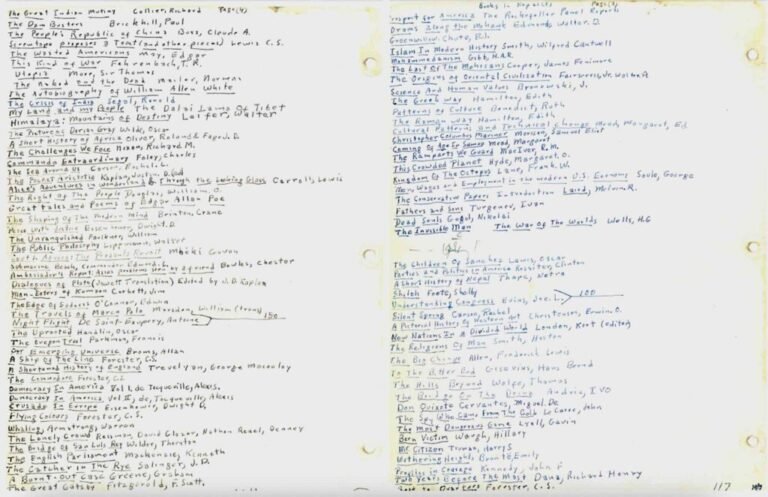 The Great Indian Mutiny Collier, Richard Page (4)
The Dam Busters Brickhill, Paul
The People's Republic of China Buss, Claude A.
Screwtape proposes a Toast (and other pieces) Lewis C.S.
The Wasted Americans May, Edgar
This Kind of War Fehrenbach, T.R.
Utopia More, Sir Thomas
The Naked and the Dead Mailer, Norman
The Autobiography of William Allen White
The Crisis of India Segal, Ronald
My Land and my People The Dalai Lama Of Tibet
Himalaya: Mountains of Destiny Laifer, Walter
The Picture of Dorian Gray Wilde, Oscar
A Short History of Africa Oliver, Roland & Fage J.D.
The Challenges We Face Nixon, Richard M.
Commando Extraordinary Foley, Charles
The Sea Around Us Carson, Rachel L.
The Pocket Aristotle Kaplan, Justin D. (ed)
Alice's Adventures in Wonderland & Through the Looking Glass Carroll, Lewis
The Right of The People Douglas, William O.
Great tales and Poems of Edgar Allan Poe
The Shaping of The Modern Mind Brinton, Crane
Peace with Justice Eisenhower, Dwight D.
The Unvanquished Faulkner, William
The Public Philosophy Lippmann, Walter
South Africa: The Peasants Revolt Mbeki Govan
Submarine Beach, Commander Edward L.
Ambassador's Report: Asian problems seen by a friend Bowles, Chester
Dialogues of Plato (Jowett Translation) Edited by J.D. Kaplan
Man-Eaters of Kumaon Corbett, Jim
The Edge of Sadness O'Connor, Edwin
The Travels of Marco Polo Marsden, William (trans)
Night Flight De Saint-Exupery, Antoine 150
The Uprooted Handlin, Oscar
The Oregon Trail Parkman, Francis
Our Emerging Universe Broms, Allan
A Ship Of The Line Forester, C.S.
A Shortened History of England Trevelyan, George Macaulay
The Commodore Forester, C.S.
Democracy In America Vol I, de Tocqueville, Alexis.
Democracy In America Vol II, de Tocqueville, Alexis
Crusade In Europe Eisenhower, Dwight D.
Flying Colours Forester, C.S.
Whaling, Armstrong, Warren
The Lonely Crowd Riesman, David Glazer, Nathan Reuel, Denney
The Bridge of San Luis Rey Wilder, Thornton
The English Parliament Mackenzie, Kenneth
The Catcher In The Rye Salinger, J.D.
A Burnt-Out Case Greene, Graham
The Great Gatsby Fitzgerald, F. Scott,
Books in Page (3)
Prospect for America The Rockefeller Panel Reports
Drums Along the Mohawk Edmonds, Walter D.
Greenwillow Chute, B.J.
Islam In Modern History Smith, Wilfred Cantwell
Mohammedanism Gibb, H.A.R.
The Last Of The Mohicans Cooper, James Fenimore
The Origins of Oriental Civilization Fairservis, Jr. Walter A
Science And Human Values Bronowski, J.
The Greek Way Hamilton, Edith
Patterns of Culture Benedict, Ruth
The Roman Way Hamilton, Edith
Cultural Patterns and Technical Change Mead, Margaret, Ed
Christopher Columbus Mariner Morison, Samuel Eliot
Coming of Age In Samoa Mead, Margaret
The Ramparts We Guard MacIver, R.M.
This Crowded Planet Hyde, Margaret. O.
Kingdom Of The Octopus Lane, Frank. W.
Men, Wages and Employment in the modern U.S. Economy Soule, George
The Conservative Papers Introduction Laird, Melvin R.
Fathers and Sons Turgenev, Ivan
Dead Souls Gogol, Nikolai
The Invisible Man The War Of The Worlds Wells, H.G
The Children Of Sanchez Lewis, Oscar
Parties and Politics in America Rossiter, Clinton
A Short History of Nepal Thapa, Netra
Shiloh Foote, Shelby
Understanding Congress Evins, Joe L. 100
Silent Spring Carson, Rachel
A Pictorial History of Western Art Christensen, Erwin O.
New Nations In A Divided World London, Kurt (editor)
The Religions Of Man Smith, Huston
The Big Change Allen, Frederick Lewis
To The Bitter End Gisevius, Hans Bernd
The Hills Beyond Wolfe, Thomas
The Bridge On The Drina Andric, IVO
Don Quixote Cervantes, Miguel De
The Spy Who Came From The Cold Le Carre, John
The Most Dangerous Game Lyall, Gavin
Born Victim Waugh, Hillary
Mr Citizen Truman, Harry S
Wuthering Heights Bronte, Emily
Profiles in Courage Kennedy, John F
Two Years Before The Mast Dana, Richard Henry
Forester, C.S.
117